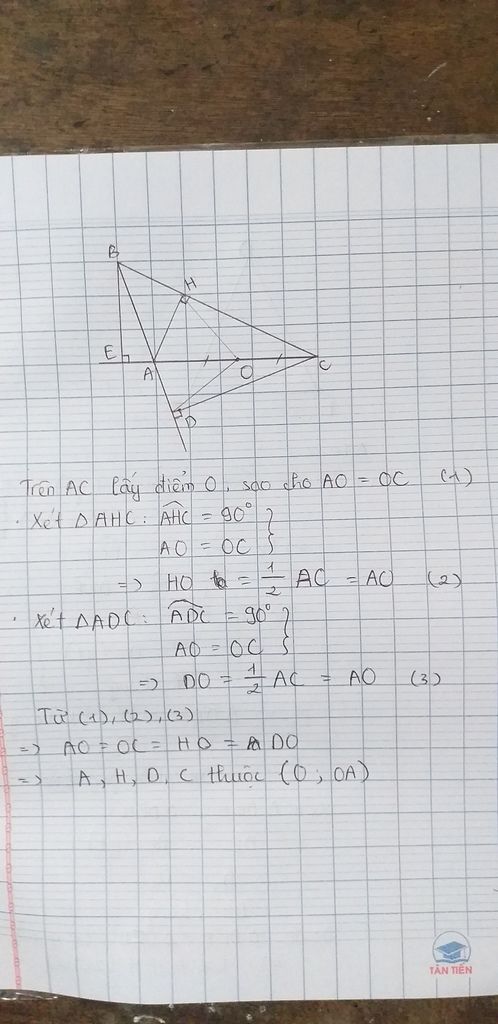 B
H
E
A
O
C
D
Trên AC lấy điểm O, sao cho AO = OC (1)
. Xét △AHC: AHC = 90°
AO = OC
=> HO = 1/2 AC = AO (2)
. Xét △ADC: ADC = 90°
AO = OC
=> DO = 1/2 AC = AO (3)
Từ (1), (2), (3)
=> AO = OC = HO = DO
=> A, H, D, C thuộc (O; OA)
TÂN TIẾN